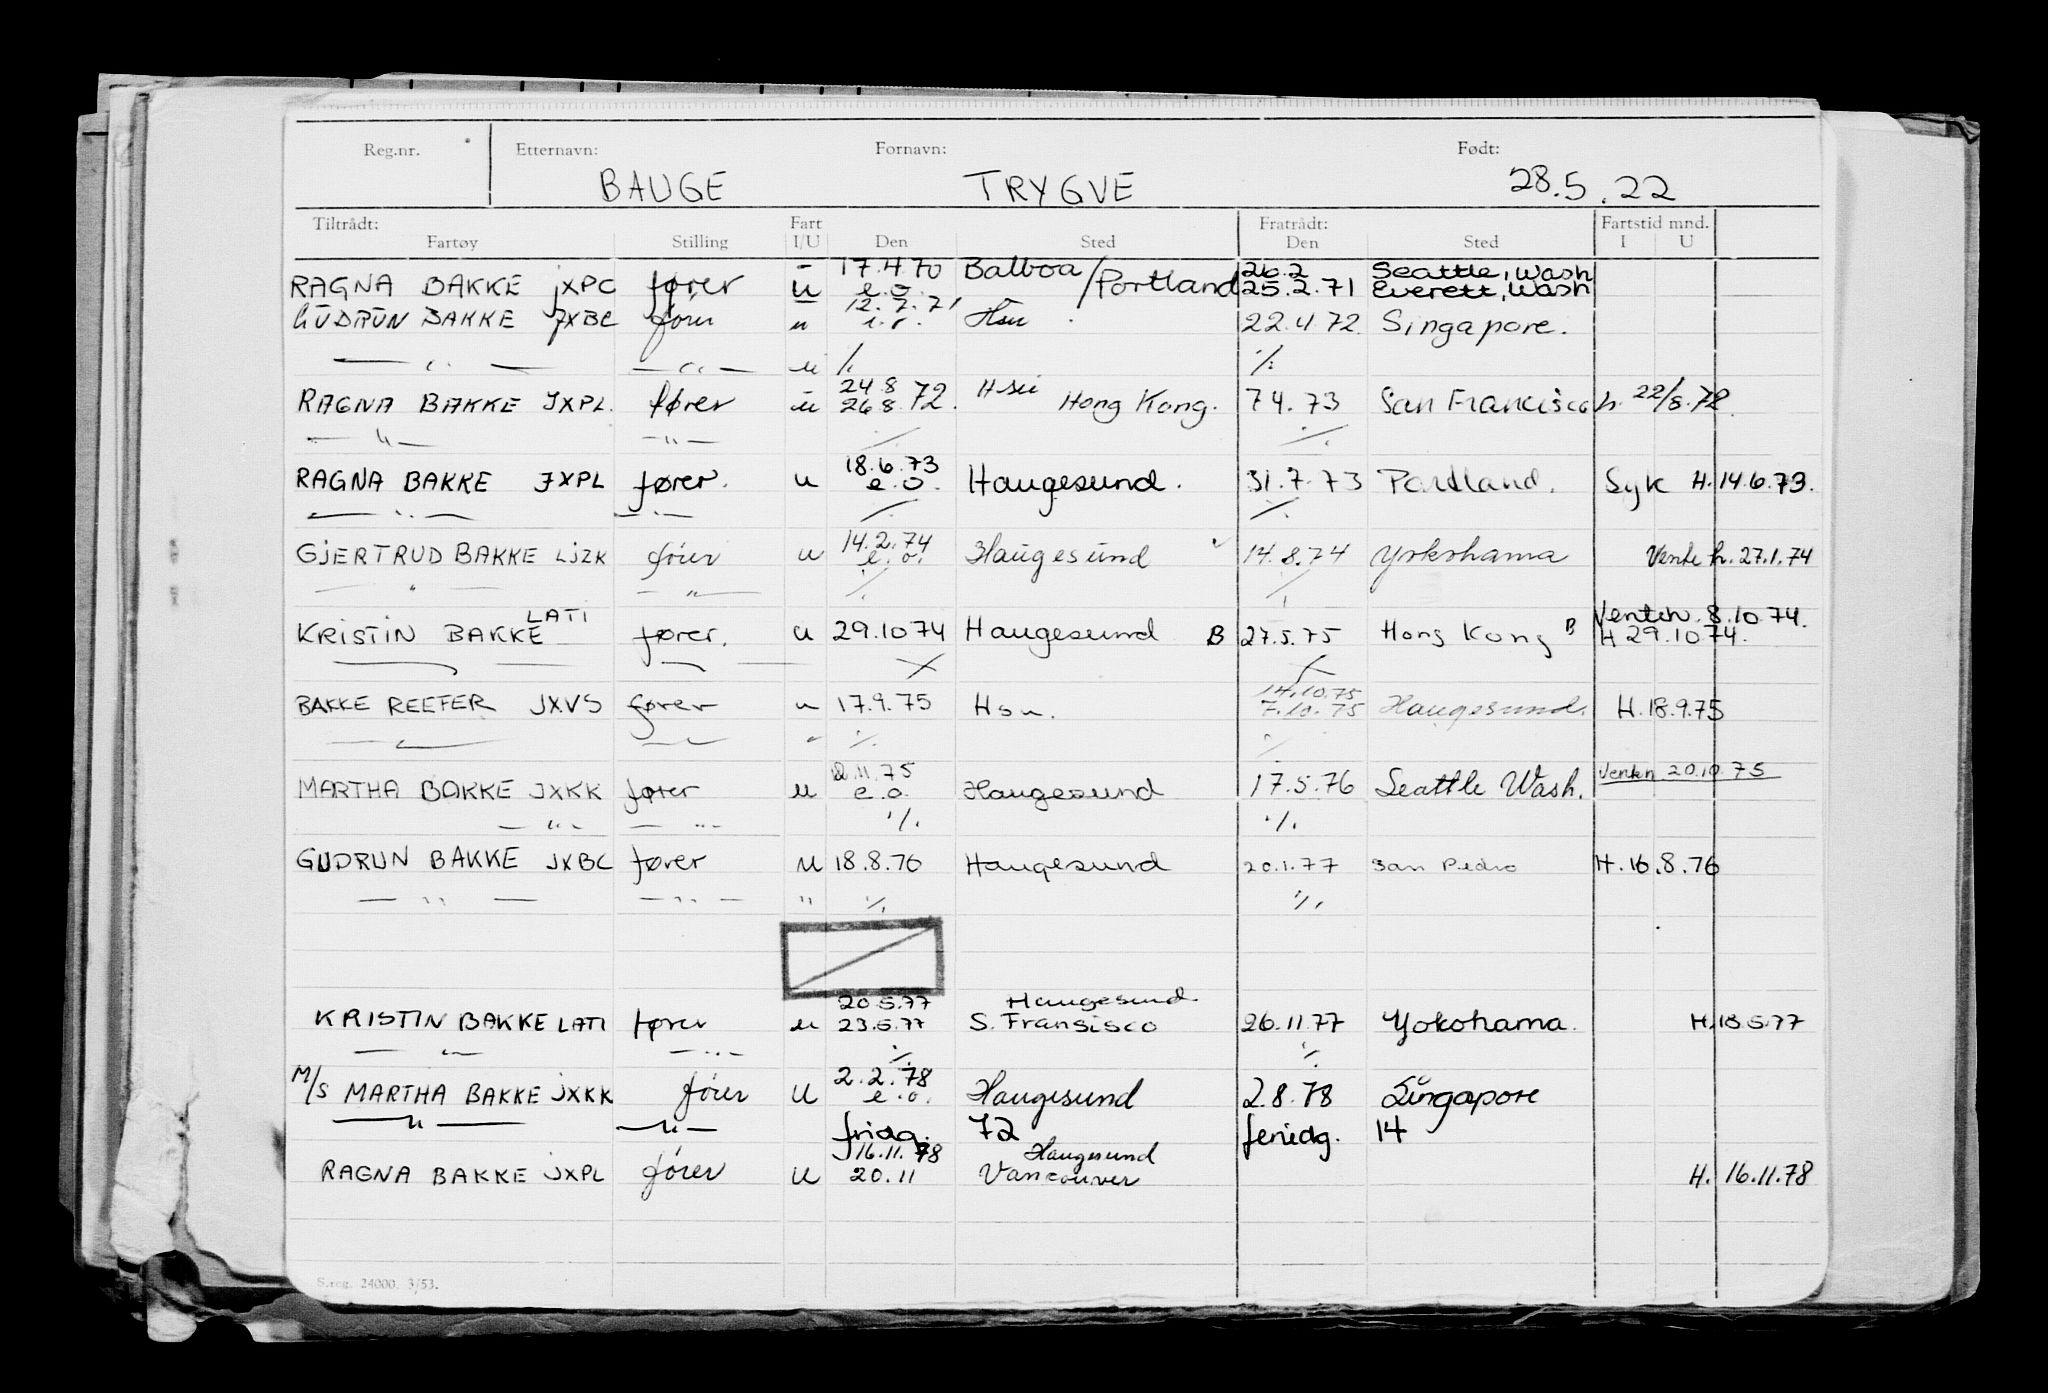 Reg.nr. Etternavn: Fornavn: Født:
BAUGE TRYGVE 28.5.22
Tiltrådt: Fart Fratrådt: Fartstid mnd.
Fartøy Stilling I/U Den Sted Den Sted I U
17.4.70 Balboa 26.2 Seattle, Wash
RAGNA BAKKE JXPC fører u e.o. /Portland 25.2.71 Everett, Wash
12.7.71
GUDRUN BAKKE JXBC fører u Hsu 22.4.72. Singapore.
— " — — " — u ./. ./.
24.8 Hsu
RAGNA BAKKE JXPL. fører u 26.8.72. Hong Kong. 7.4.73 San Francisco h. 22/8.72.
— " — — " — ./. ./.
18.6.73
RAGNA BAKKE JXPL fører. u e.o. Haugesund. 31.7.73 Portland. Syk H.14.6.73.
— " — — " — ./. ./.
14.2.74
GJERTRUD BAKKE LJZK fører u e.o. Haugesund 14.8.74 Yokohama Vente h. 27.1.74
— " — — " — ./. ./.
LATI Venten. 8.10.74.
KRISTIN BAKKE fører. u 29.10 74 Haugesund B 27.5.75 Hong Kong B H 29.10 74.
14.10.75
BAKKE REEFER JXVS fører u 17.9.75 Hsu. 7.10.75 Haugesund. H.18.9.75
./. ./.
2.11.75 Venten 20.10.75
MARTHA BAKKE JXKK fører u e.o. Haugesund 17.5.76 Seattle Wash.
— " — — " — ./. ./.
GUDRUN BAKKE JXBC fører u 18.8.76 Haugesund 20.1.77 San Pedro H.16.8.76
— " — — " — " ./. ./.
20.5.77 Haugesund
KRISTIN BAKKE LATI fører u 23.5.77 S. Fransisco 26.11.77 Yokohama. H.18.5.77
— " — — " — ./. ./.
2.2.78
M/S MARTHA BAKKE JXKK fører U e.o. Haugesund 2.8.78 Singapore
— " — — " — fridg. 72 feriedg. 14
16.11.78 Haugesund
RAGNA BAKKE JXPL fører U 20.11 Vancouver H. 16.11.78
S.reg. 24000. 3/53.